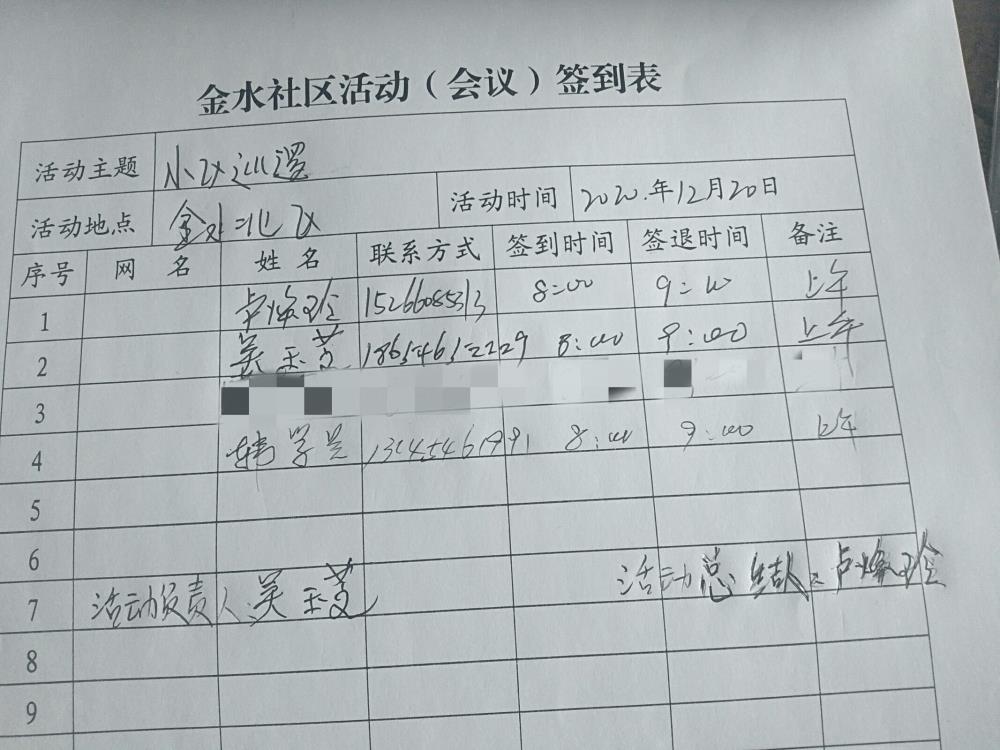 金水社区活动（会议）签到表
活动主题 小区巡逻
活动地点 金水北区 活动时间 2020.年12月20日
序号 网名 姓名 联系方式 签到时间 签退时间 备注
1 卢焕玲 15266085313 8:00 9:00 上午
2 吴玉芝 8:00 9:00 上午
3
4 韩学 8:00 9:00 上午
5
6
7 活动负责人:吴玉芝 活动总结人:卢焕玲
8
9